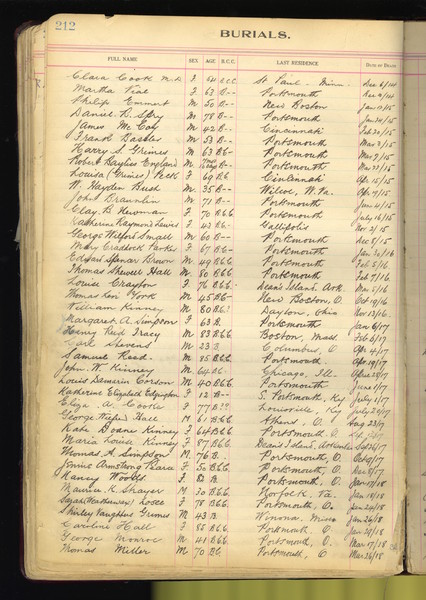 212
BURIALS.
FULL NAME SEX AGE B.C.C. LAST RESIDENCE DATE OF DEATH
Clara Cook M.D. F B.C.C. St. Paul Minn. Dec 6/14
Martha Teal F 63 B-- Portsmouth
Philip Emmert M 50 B-- New Boston Jan 19/15
Daniel R. Spry M 78 B-- Portsmouth Jan 24/15
James McCoy M 42 B-- Cincinnati Feb 20/15
Frank M 53 B-- Portsmouth Mar 3/15
Harry S. Grimes M 63 B.C. Portsmouth Mar 9/15
Robert Bayliss England M Portsmouth Mar 22/15
Louisa (Grimes) Peck F 69 B.C. Cincinnati Apr 15/15
W. Hayden Bush M 35 B-- Wilcoe, W.Va. Apr 19/15
John Braunlin M 71 B-- Portsmouth Jun 4/15
Clay B. Newman F 70 B.C.C. Portsmouth July 16/15
Katherine Raymond Lewis F 43 B.C. Gallipolis Nov 2/15
George Wilford Small M 60 B-- Portsmouth Dec 8/15
Mary Craddock Parker F 67 B-- Portsmouth Jan 26/16
Edgar Spencer Brown M 49 B.C.C. Portsmouth Feb 5/16
Thomas Shewell Hall M 80 B.C.C. Portsmouth Feb 7/16
Louise Crayton F 76 B.C.C. Dean's Island. Ark Mar 5/16
Thomas York M 45 B.C. New Boston, O. Oct 19/16
William Kinney M 80 B.C. Dayton, Ohio Nov 13/16
Margaret A. Simpson F 63 B. Portsmouth Jan 6/17
Henry Reid Tracy M 83 B.C.C. Boston, Mass Feb 6/17
Carl Stevens M 23 Columbus, O. Apr 4/17
Samuel Reed M 85 B.C.C. Portsmouth Apr 19/17
John W. Kinney M 64 B.C. Chicago, Ill. Apr 29/17
Louis Damarin Corson M 40 B.C.C. Portsmouth June 1/17
Katherine Elizabeth Edgington F 12 B-- S. Portsmouth, Ky July 1/17
Eliza A. Cooke F 77 Louisville, Ky July 27/17
George Hall M 61 B.C.C. Athens, O. Aug 23/17
Kate Doane Kinney F 64 B.C.C. Portsmouth, O.
Maria Louise Kinney F 87 B.C.C. Dean's Island, Arkansas Sep 26/17
Thomas A. Simpson M. 76 B. Portsmouth, O. Oct 9/17
Jennie Armstrong F 50 B.C.C. Portsmouth, O. Dec 8/17
Nancy Woods F 82 B. Portsmouth, O. Jan 17/18
Maurice K. Shayer M 30 B.C.C. Norfolk, Va. Jan 18/18
Sarah F 78 B.C.C. Portsmouth, O. Jan 24/18
Shirley Vaughters Grimes M 43 B. Winona, Minn Jan 26/18
Caroline Hall F 85 B.C.C. Portsmouth, O. Jan 29/18
George Monroe M 41 B.C.C. Portsmouth, O. Mar 17/18
Thomas Miller M 70 B.C. Portsmouth, O Mar 26/18